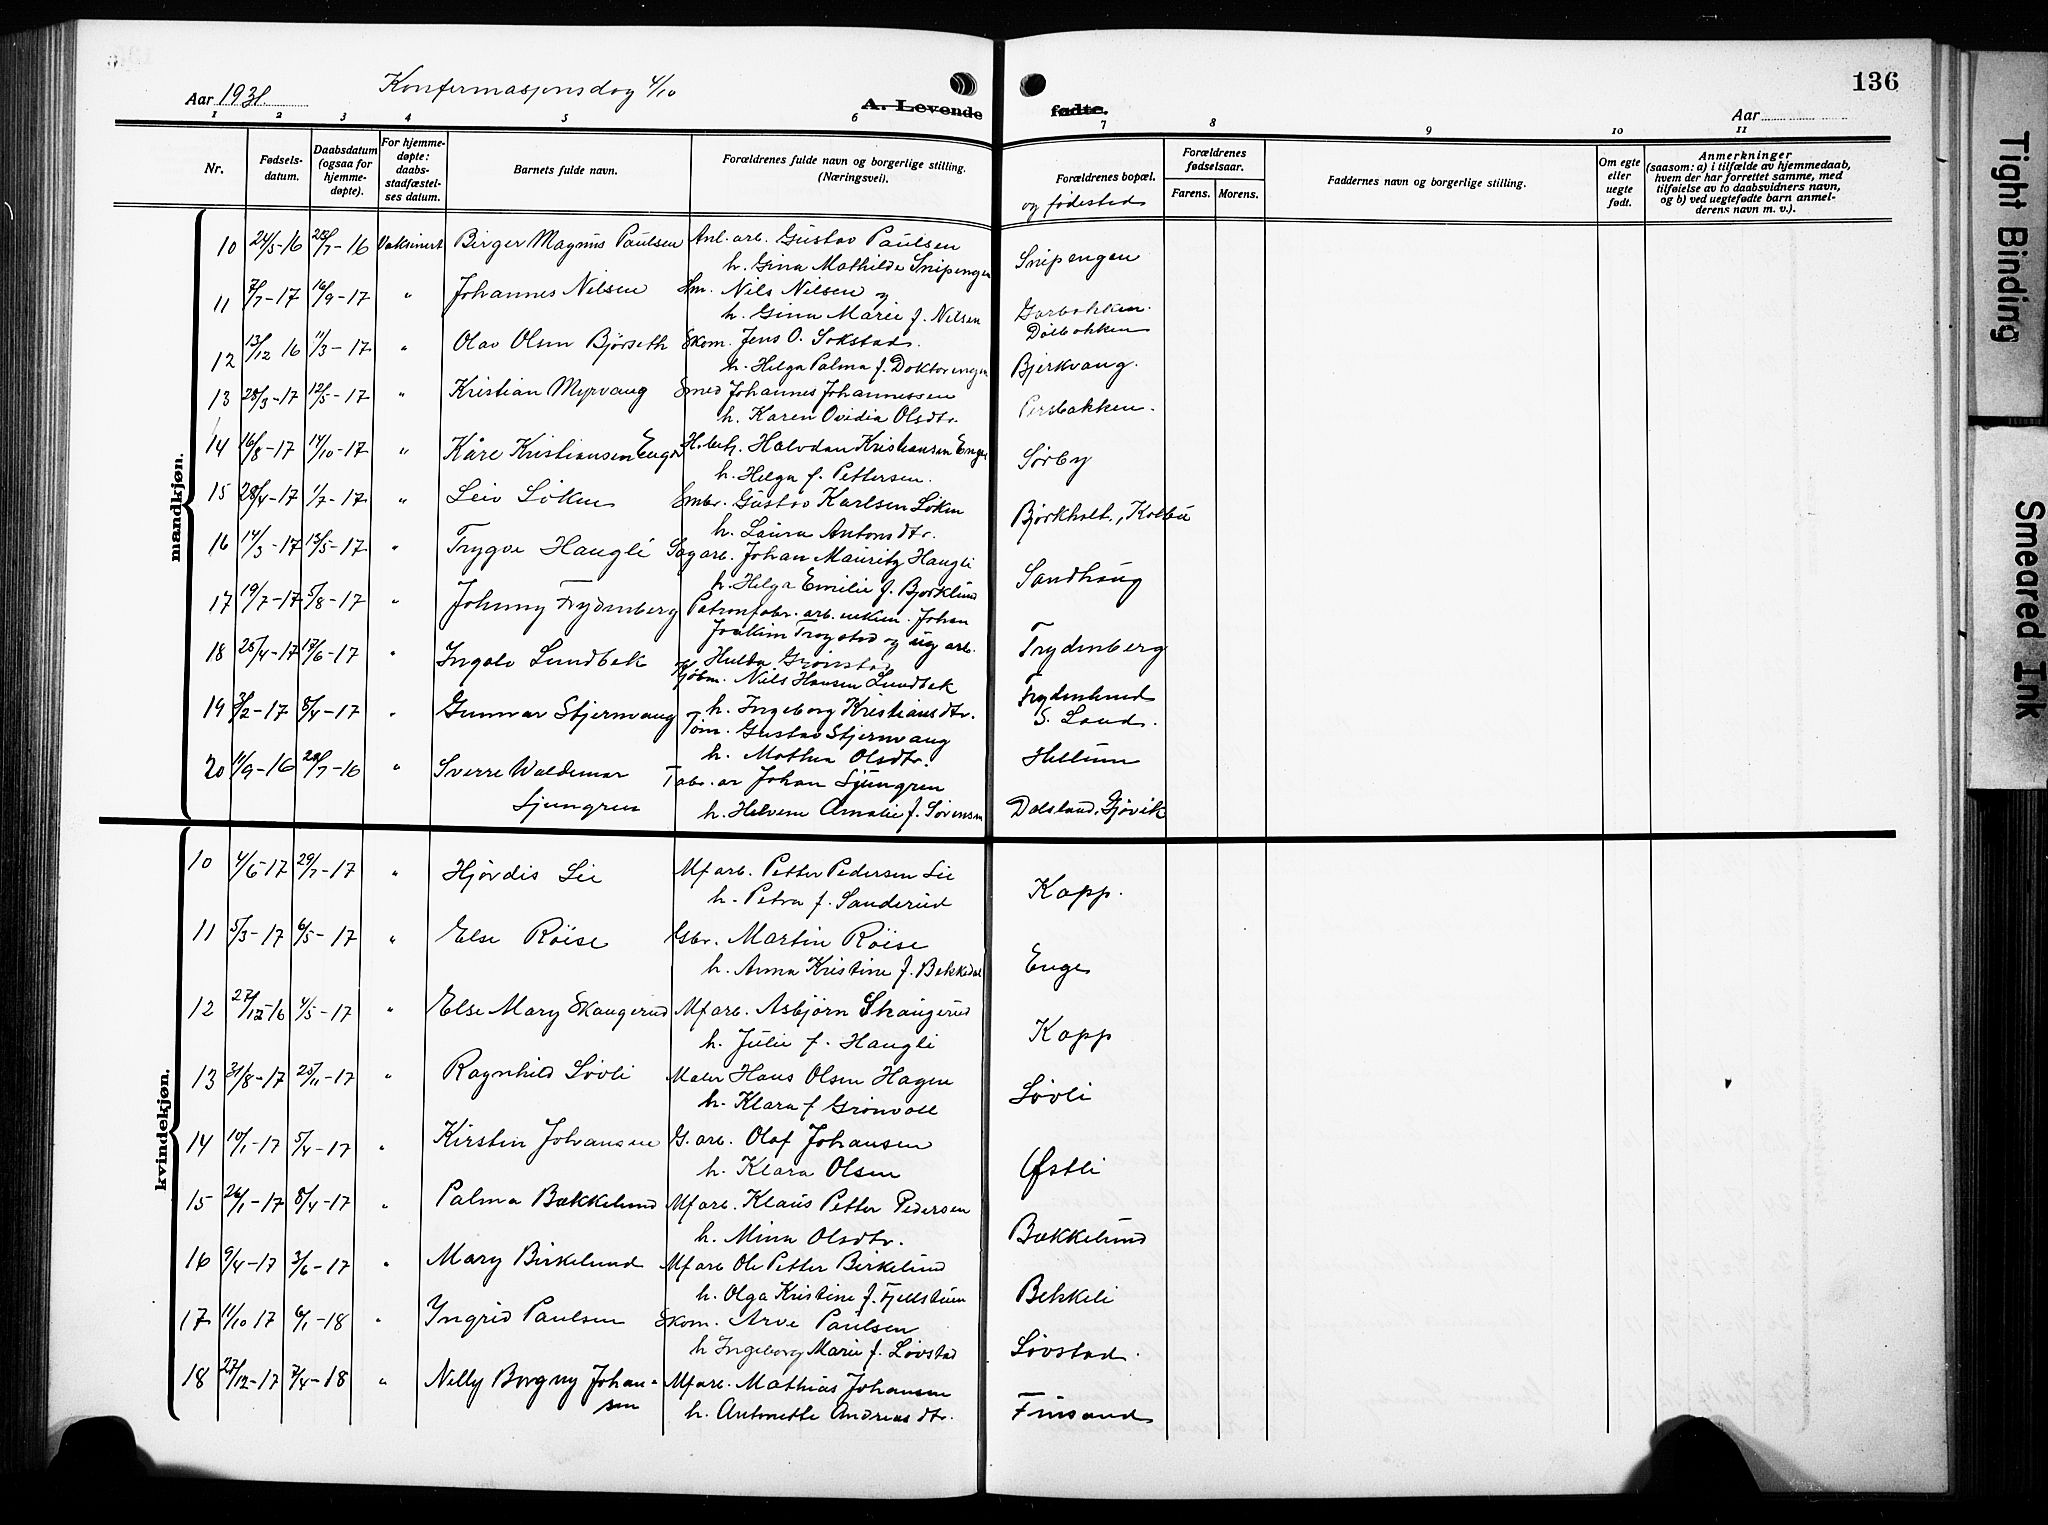 Aar 1931. Konfermasjonsdag 4/10 A. Levende fødte. 136
Aar
1 2 3 4 5 6 7 8 9 10 11
Nr. Fødsels-datum. Daabsdatum (ogsaa for hjemme-døpte). For hjemme-døpte: daabs-stadfæstel-ses datum. Barnets fulde navn. Forældrenes fulde navn og borgerlige stilling. (Næringsvei). Forældrenes bopæl. og fødested Forældrenes fødselsaar. Farens. Morens. Faddernes navn og borgerlige stilling. Om egte eller uegte født. Anmerkninger (saasom: a) i tilfælde av hjemmedaab, hvem der har forrettet samme, med tilføielse av to daabsvidners navn, og b) ved uegtefødte barn anmel-derens navn m. v.).
mandkjøn.
10 24/5-16 23/7-16 Vaksinert Birger Magnus Paulsen Anl. arb. Gustav Paulsen
h. Gina Mathilde Snipengen Snipengen
11 7/7-17 16/9-17 " Johannes Nilsen Sm. Nils Nilsen og
h. Gina Marie f. Nilsen Garbakken. Dalbakken
12 13/12 16 11/3-17 " Olav Olsen Bjørseth Skom. Jens O. Sokstad.
h. Helga Palma f. Doktorengen Bjerkvang.
13 28/3-17 12/5-17 " Kristian Myrvang Smed Johannes Johannessen
h. Karen Ovidia Olsdtr. Persbakken.
14 16/8-17 14/10-17 " Kåre Kristiansen Enger Halvdan Kristiansen Enger
h. Helga f. Pettersen. Sørby
15 28/4-17 1/7-17 " Leiv Løken Smbr. Gustav Karlsen Løken
h. Laura Antonsdtr. Bjørkholt., Kolbu
16 14/3-17 13/5-17 " Trygve Haugli Sagarb. Johan Mauritz Haugli
h. Helga Emilie f. Bjørklund Sandhaug
17 19/7-17 5/8-17 " Johnny Frydenberg Patronfabr. arb. enkem. Johan
Joakim Trogstad og ug arb.
Hulda Grønstad Frydenberg
18 25/4-17 17/6-17 " Ingolv Lundbek Kjøbm. Nils Hansen Lundbek
h. Ingeborg Kristiansdtr. Frydenlund S. Land.
19 3/2-17 8/4-17 " Gunnar Stjernvang Tøm. Gustav Stjernvang
h. Mathea Olsdtr. Hellum
20 11/9-16 /7-16 " Sverre Waldemar Ljungren Fabr. ar Johan Ljungren
h. Helvene Amalie f. Sørensen Dalsland, Gjøvik
kvindekjøn.
10 4/6-17 29/7-17 " Hjørdis Lie Mf arb. Petter Pedersen Lie
h. Petra f. Sanderud Kapp.
11 5/3-17 6/5-17 " Else Røise Gbr. Martin Røise
h. Anna Kristine f. Bekkedal Enge
12 27/12-16 4/5-17 " Else Mary Skaugerud Mf arb. Asbjørn Skaugerud
h. Julie f. Haugli Kapp
13 31/8-17 25/11-17 " Ragnhild Løvli Maler Hans Olsen Hagen
h. Klara f Grønvoll Løvli
14 10/1-17 5/4-17 " Kirsten Johansen G. arb. Olaf Johansen
h. Klara Olsen Østli
15 26/1-17 8/4-17 " Palma Bækkelund Mf arb. Klaus Petter Pedersen
h. Mina Olsdtr. Bækkelund
16 9/4-17 3/6-17 " Mary Birkelund Mf arb Ole Petter Birkelund
h. Olga Kristine f. Fjellstuen Bekkeli
17 11/10 17 6/1-18 " Ingrid Paulsen Skom. Arve Paulsen
h Ingeborg Marie f. Løvstad Løvstad.
18 27/12-17 7/4-18 " Nelly Borgny Johansen Mf arb. Mathias Johansen
h. Antonette Andreasdtr. Finsand
Tight Binding
Smeared Ink